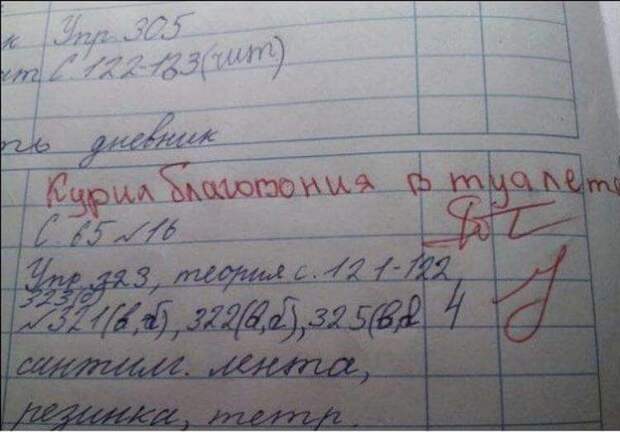 к Упр 305
ит С. 122-123(чит)
ть дневник
Курил благовония в туалете
С. 65 №16
Упр. 323, теория с. 121-122
323(б)
№321(в,б), 322(в,б), 325(в,б 4
сантим. лента,
резинка, тетр.